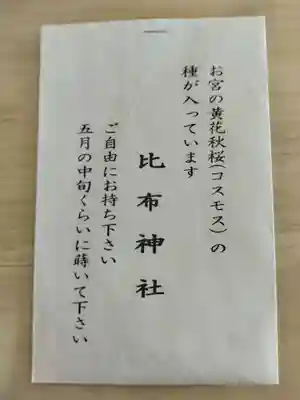 お宮の黄花秋桜(コスモス)の
種が入っています
比布神社
ご自由にお持ち下さい
五月の中旬くらいに蒔いて下さい